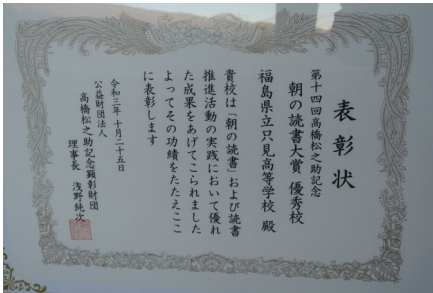 表彰状
第十四回高橋松之助記念
朝の読書大賞 優秀校
福島県立只見高等学校 殿
貴校は「朝の読書」および読書
推進活動の実践において優れ
た成果をあげてこられました
よってその功績をたたえここ
に表彰します
令和三年十月二十五日
公益財団法人
高橋松之助記念顕彰財団
理事長 浅野純次